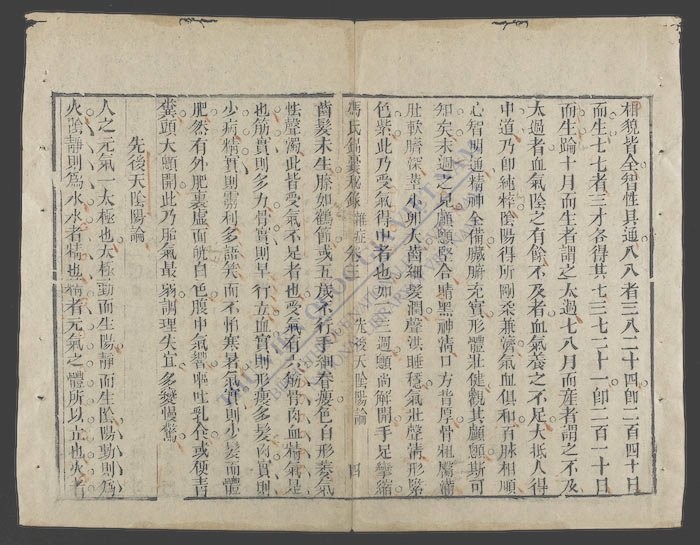 相貌皆全智性具通八八者三八二十四即二百四十日
而生七七者三才各得其七三七二十一即二百一十日
而生踰十月而生者謂之太過七八月而産者謂之不及
太過者血氣陰之有餘不及者血氣養之不足大抵人得
中道乃即純粹陰陽得所剛柔兼濟氣血俱和百脉相順
心智明通精神全備臟腑充實形體壯健觀其顱顖斯可
知矣未過之兒顱顖堅合睛黑神清口方背厚骨粗臀滿
肚軟臍深莖小卵大齒細髮潤聲洪睡穩氣壯聲清形緊
色紫此乃受氣得中者也如二三週顖尚解開手足攣縮
馮氏錦囊秘錄 雜症 卷三 先後天陰陽論 四
齒髮未生膝如鶴節或五歲不行手細脊瘦色白形萎氣
怯聲濁此皆受氣不足者也受氣有六筋骨肉血精氣是
也筋實則多力骨實則早行血實則形瘦多髮肉實則
少病精實則靈利多語笑而不怕寒暑氣實則少髮而體
肥然有外肥裏虛面㿠白色腹中氣響嘔吐乳食或便青
糞頭大顖開此乃胎氣最弱調理失宜多變慢驚
先後天陰陽論
人之元氣一太極也太極動而生陽靜而生陰陽動則為
火陰靜則為水水者精也精者元氣之體所以立也火者